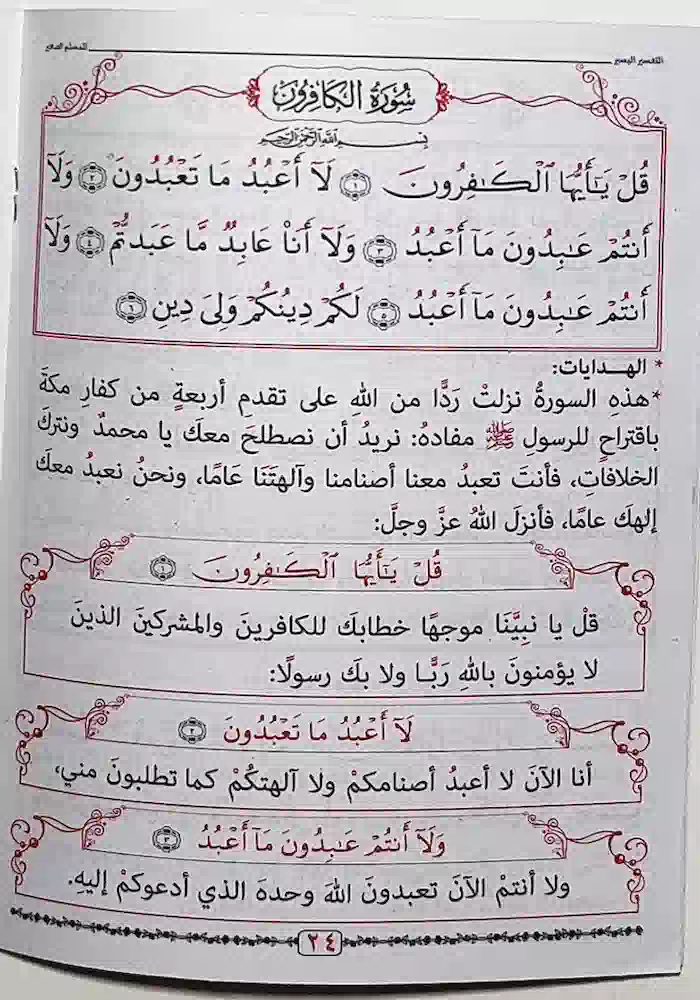 التفسير اليسير
للمسلم الصغير
سُورَةُ الكَافِرُونَ
بِسْمِ اللَّهِ الرَّحْمَنِ الرَّحِيمِ
قُلْ يَـٰٓأَيُّهَا ٱلْكَـٰفِرُونَ ١ لَآ أَعْبُدُ مَا تَعْبُدُونَ ٢ وَلَآ
أَنتُمْ عَـٰبِدُونَ مَآ أَعْبُدُ ٣ وَلَآ أَنَا۠ عَابِدٌ مَّا عَبَدتُّمْ ٤ وَلَآ
أَنتُمْ عَـٰبِدُونَ مَآ أَعْبُدُ ٥ لَكُمْ دِينُكُمْ وَلِىَ دِينِ ٦
* الهدايات:
* هذهِ السورةُ نزلتْ رَدًّا من اللهِ على تقدمِ أربعةٍ من كفارِ مكةَ
باقتراحٍ للرسولِ ﷺ مفادهُ: نريدُ أن نصطلحَ معكَ يا محمدُ ونتركَ
الخلافاتِ، فأنتَ تعبدُ معنا أصنامنا وآلهتَنَا عَامًا، ونحنُ نعبدُ معكَ
إلهكَ عامًا، فأنزلَ اللهُ عزَّ وجلَّ:
قُلْ يَـٰٓأَيُّهَا ٱلْكَـٰفِرُونَ ١
قلْ يا نبِيَّنَا موجهًا خطابكَ للكافرينَ والمشركينَ الذينَ
لا يؤمنونَ باللهِ رَبًّا ولا بكَ رسولًا:
لَآ أَعْبُدُ مَا تَعْبُدُونَ ٢
أنا الآنَ لا أعبدُ أصنامكمْ ولا آلهتكُمْ كما تطلبونَ مني،
وَلَآ أَنتُمْ عَـٰبِدُونَ مَآ أَعْبُدُ ٣
ولا أنتمْ الآنَ تعبدونَ اللهَ وحدهَ الذي أدعوكمْ إليهِ.
٢٤